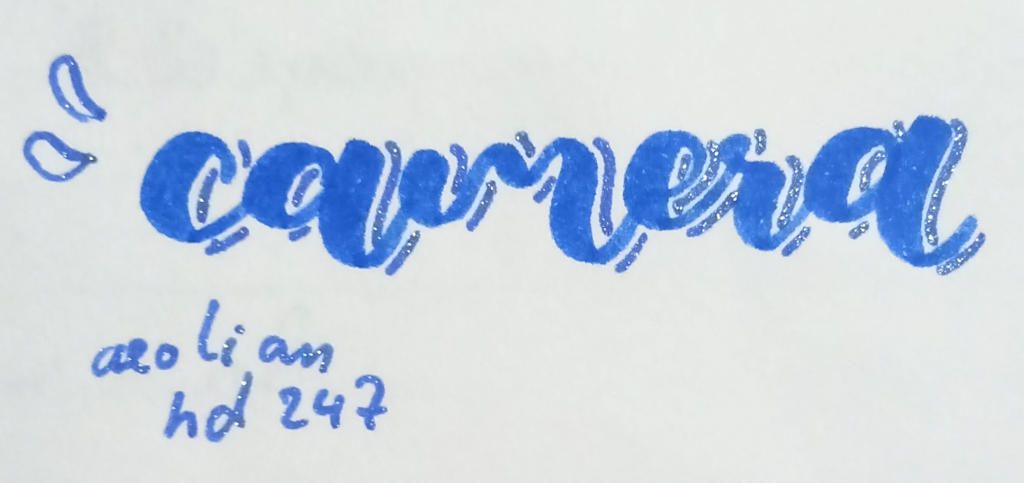 camera
aeolian
hd 247